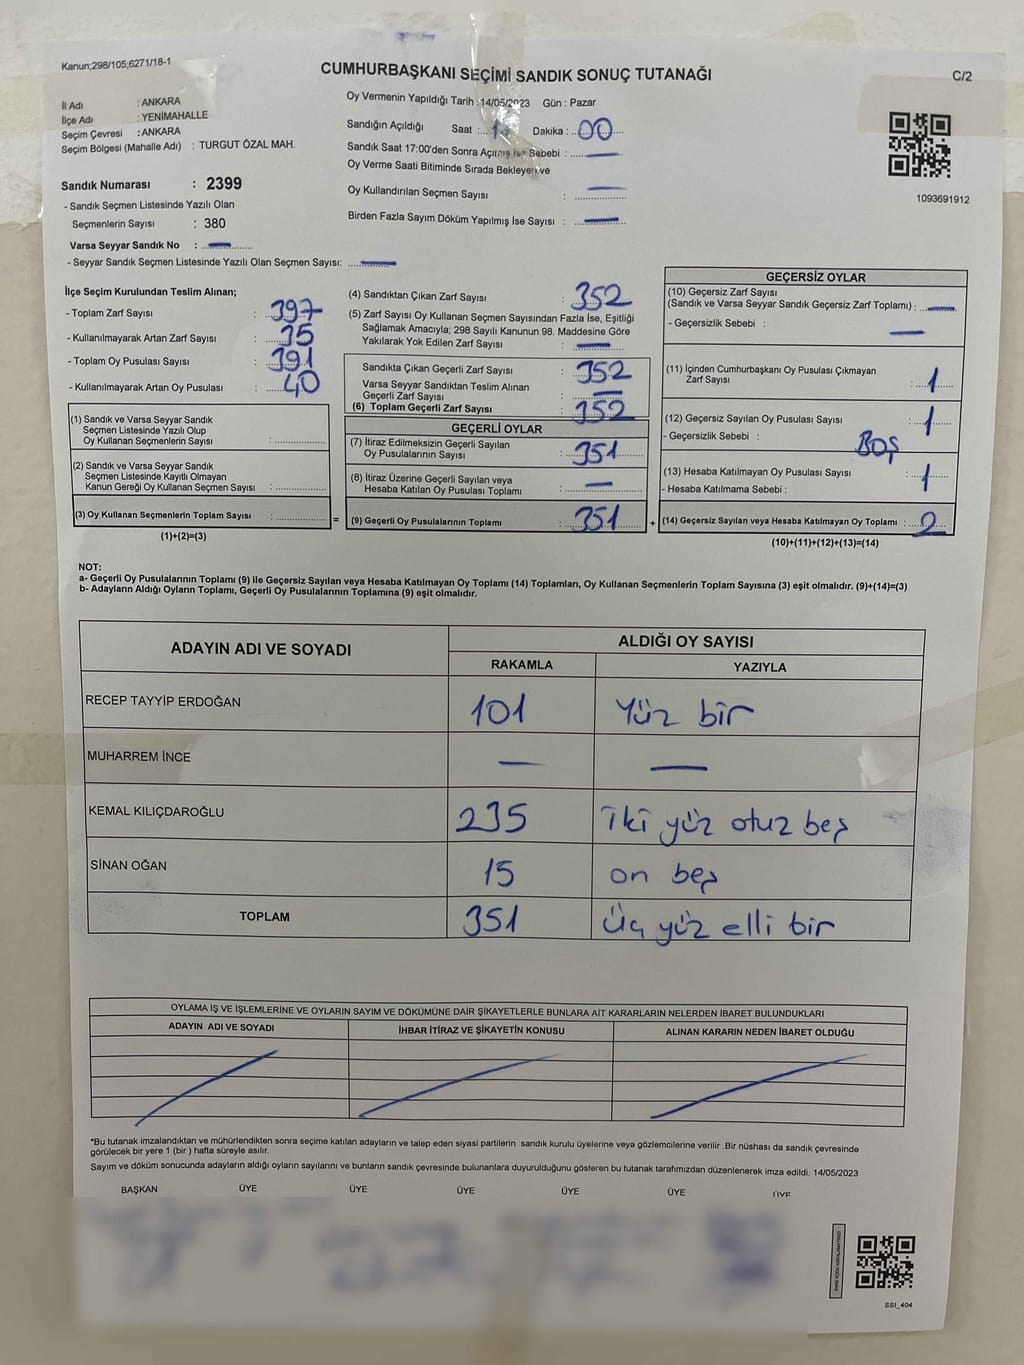 Kanun;298/105;6271/18-1
CUMHURBAŞKANI SEÇİMİ SANDIK SONUÇ TUTANAĞI
C/2
İl Adı : ANKARA
İlçe Adı : YENİMAHALLE
Seçim Çevresi : ANKARA
Seçim Bölgesi (Mahalle Adı) : TURGUT ÖZAL MAH.
Sandık Numarası : 2399
- Sandık Seçmen Listesinde Yazılı Olan
Seçmenlerin Sayısı : 380
Varsa Seyyar Sandık No : —
- Seyyar Sandık Seçmen Listesinde Yazılı Olan Seçmen Sayısı: —
Oy Vermenin Yapıldığı Tarih :14/05/2023 Gün : Pazar
Sandığın Açıldığı Saat : Dakika : 00
Sandık Saat 17:00'den Sonra Açılmış İse Sebebi : —
Oy Verme Saati Bitiminde Sırada Bekleyen ve
Oy Kullandırılan Seçmen Sayısı : —
Birden Fazla Sayım Döküm Yapılmış İse Sayısı : —
1093691912
İlçe Seçim Kurulundan Teslim Alınan;
- Toplam Zarf Sayısı : 397
- Kullanılmayarak Artan Zarf Sayısı : 35
- Toplam Oy Pusulası Sayısı : 391
- Kullanılmayarak Artan Oy Pusulası : 40
(1) Sandık ve Varsa Seyyar Sandık
Seçmen Listesinde Yazılı Olup
Oy Kullanan Seçmenlerin Sayısı :
(2) Sandık ve Varsa Seyyar Sandık
Seçmen Listesinde Kayıtlı Olmayan
Kanun Gereği Oy Kullanan Seçmen Sayısı :
(3) Oy Kullanan Seçmenlerin Toplam Sayısı :
(1)+(2)=(3)
=
(4) Sandıktan Çıkan Zarf Sayısı : 352
(5) Zarf Sayısı Oy Kullanan Seçmen Sayısından Fazla İse, Eşitliği
Sağlamak Amacıyla; 298 Sayılı Kanunun 98. Maddesine Göre
Yakılarak Yok Edilen Zarf Sayısı : —
Sandıkta Çıkan Geçerli Zarf Sayısı : 352
Varsa Seyyar Sandıktan Teslim Alınan
Geçerli Zarf Sayısı : —
(6) Toplam Geçerli Zarf Sayısı : 352
GEÇERLİ OYLAR
(7) İtiraz Edilmeksizin Geçerli Sayılan
Oy Pusulalarının Sayısı : 351
(8) İtiraz Üzerine Geçerli Sayılan veya
Hesaba Katılan Oy Pusulası Toplamı : —
(9) Geçerli Oy Pusulalarının Toplamı : 351
+
GEÇERSİZ OYLAR
(10) Geçersiz Zarf Sayısı
(Sandık ve Varsa Seyyar Sandık Geçersiz Zarf Toplamı) : —
- Geçersizlik Sebebi : —
(11) İçinden Cumhurbaşkanı Oy Pusulası Çıkmayan
Zarf Sayısı : 1
(12) Geçersiz Sayılan Oy Pusulası Sayısı : 1
- Geçersizlik Sebebi : BOŞ
(13) Hesaba Katılmayan Oy Pusulası Sayısı : 1
- Hesaba Katılmama Sebebi :
(14) Geçersiz Sayılan veya Hesaba Katılmayan Oy Toplamı : 2
(10)+(11)+(12)+(13)=(14)
NOT:
a- Geçerli Oy Pusulalarının Toplamı (9) ile Geçersiz Sayılan veya Hesaba Katılmayan Oy Toplamı (14) Toplamları, Oy Kullanan Seçmenlerin Toplam Sayısına (3) eşit olmalıdır. (9)+(14)=(3)
b- Adayların Aldığı Oyların Toplamı, Geçerli Oy Pusulalarının Toplamına (9) eşit olmalıdır.
ADAYIN ADI VE SOYADI
ALDIĞI OY SAYISI
RAKAMLA YAZIYLA
RECEP TAYYİP ERDOĞAN 101 Yüz bir
MUHARREM İNCE — —
KEMAL KILIÇDAROĞLU 235 iki yüz otuz beş
SİNAN OĞAN 15 on beş
TOPLAM 351 Üç yüz elli bir
OYLAMA İŞ VE İŞLEMLERİNE VE OYLARIN SAYIM VE DÖKÜMÜNE DAİR ŞİKAYETLERLE BUNLARA AİT KARARLARIN NELERDEN İBARET BULUNDUKLARI
ADAYIN ADI VE SOYADI İHBAR İTİRAZ VE ŞİKAYETİN KONUSU ALINAN KARARIN NEDEN İBARET OLDUĞU
*Bu tutanak imzalandıktan ve mühürlendikten sonra seçime katılan adayların ve talep eden siyasi partilerin sandık kurulu üyelerine veya gözlemcilerine verilir .Bir nüshası da sandık çevresinde
görülecek bir yere 1 (bir ) hafta süreyle asılır.
Sayım ve döküm sonucunda adayların aldığı oyların sayılarını ve bunların sandık çevresinde bulunanlara duyurulduğunu gösteren bu tutanak tarafımızdan düzenlenerek imza edildi. 14/05/2023
BAŞKAN ÜYE ÜYE ÜYE ÜYE ÜYE ÜYE
SSI_404